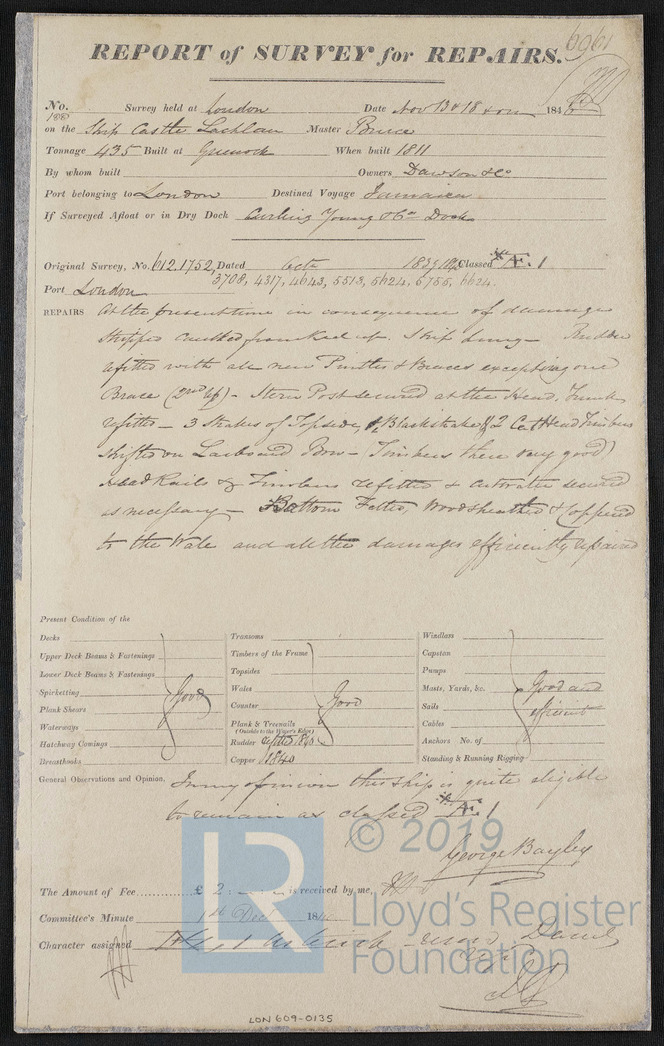 6961
REPORT of SURVEY for REPAIRS.
No. 188 Survey held at London Date Nov 13 & 18 184
on the Ship Castle Lachlan Master Bruce
Tonnage 435 Built at Greenock When built 1811
By whom built Owners Dawson & Co
Port belonging to London Destined Voyage Jamaica
If Surveyed Afloat or in Dry Dock Curling Young & Co Dock
Original Survey, No. 612.1752, Dated Octr 1837 Classed Æ. 1
3708, 4317, 4643, 5513, 5624, 5755, 6624.
Port London
REPAIRS At the present time in consequence of damage
stripped caulked from Keel up. Ship hung - Rudder
refitted with all new Pintles & Braces excepting one
Brace (2nd up) - Stern Post secured at the Head, Trunk
refitted - 3 Strakes of Topside, & Blackstrake & 2 Cat Head Timbers
shifted on Larboard Bow - Timbers there very good)
Head Rails & Timbers refitted & Cutwater secured
as necessary - Bottom Felted, Wood sheathed & Coppered
to the Wale and all the damages efficiently repaired
Present Condition of the
Decks
Upper Deck Beams & Fastenings
Lower Deck Beams & Fastenings
Spirketting
Plank Shears
Waterways
Hatchway Comings
Breasthooks
Good
Transoms
Timbers of the Frame
Topsides
Wales
Counter
Plank & Treenails
(Outside to the Water's Edge)
Rudder refitted 1840
Copper 1840
Good
Windlass
Capstan
Pumps
Masts, Yards, &c.
Sails
Cables
Anchors No. of
Standing & Running Rigging
Good and
efficient
General Observations and Opinion, In my opinion this ship is quite eligible
to remain as classed Æ. 1
George Bayley
The Amount of Fee £ 2 : is received by me,
Committee's Minute 1st Decr 184
Character assigned
© 2019
LR
Lloyd's Register
Foundation
LON 609-0135